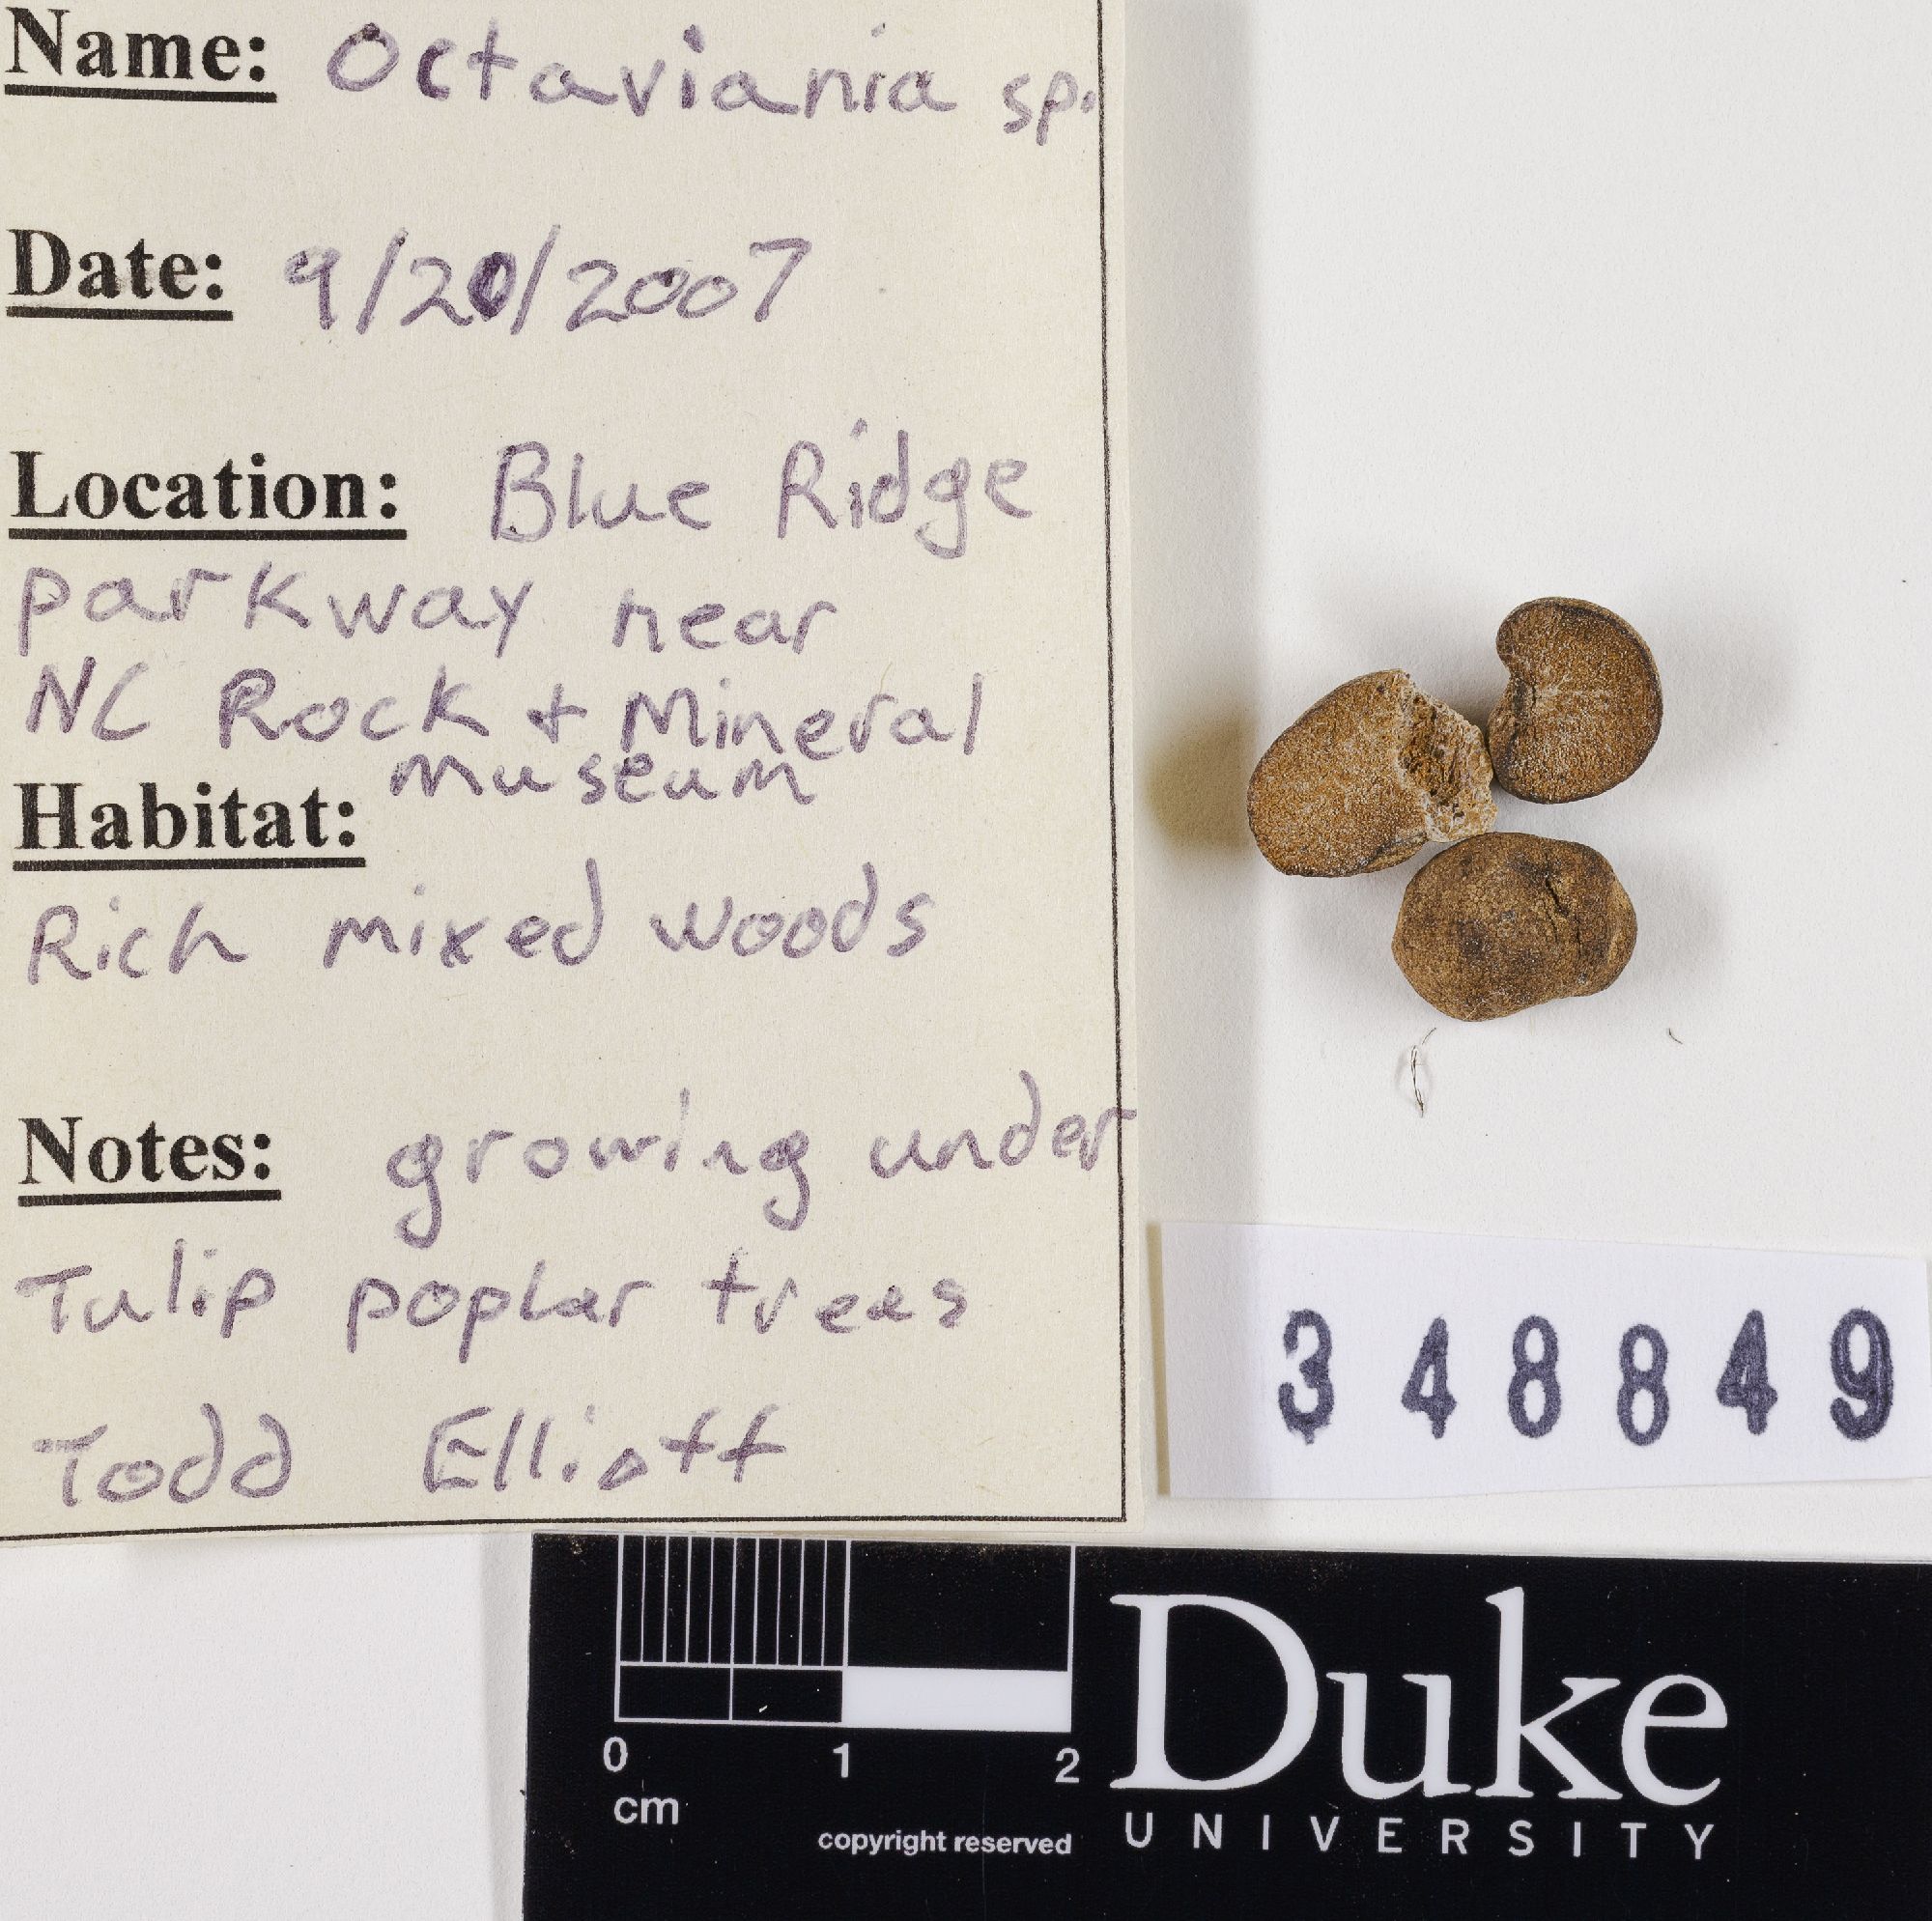 Name: Octaviania sp.
Date: 9/20/2007
Location: Blue Ridge
parkway near
NC Rock + Mineral
museum
Habitat:
Rich mixed woods
Notes: growing under
Tulip poplar trees
Todd Elliott
348849
0 1 2
cm
copyright reserved
Duke
UNIVERSITY